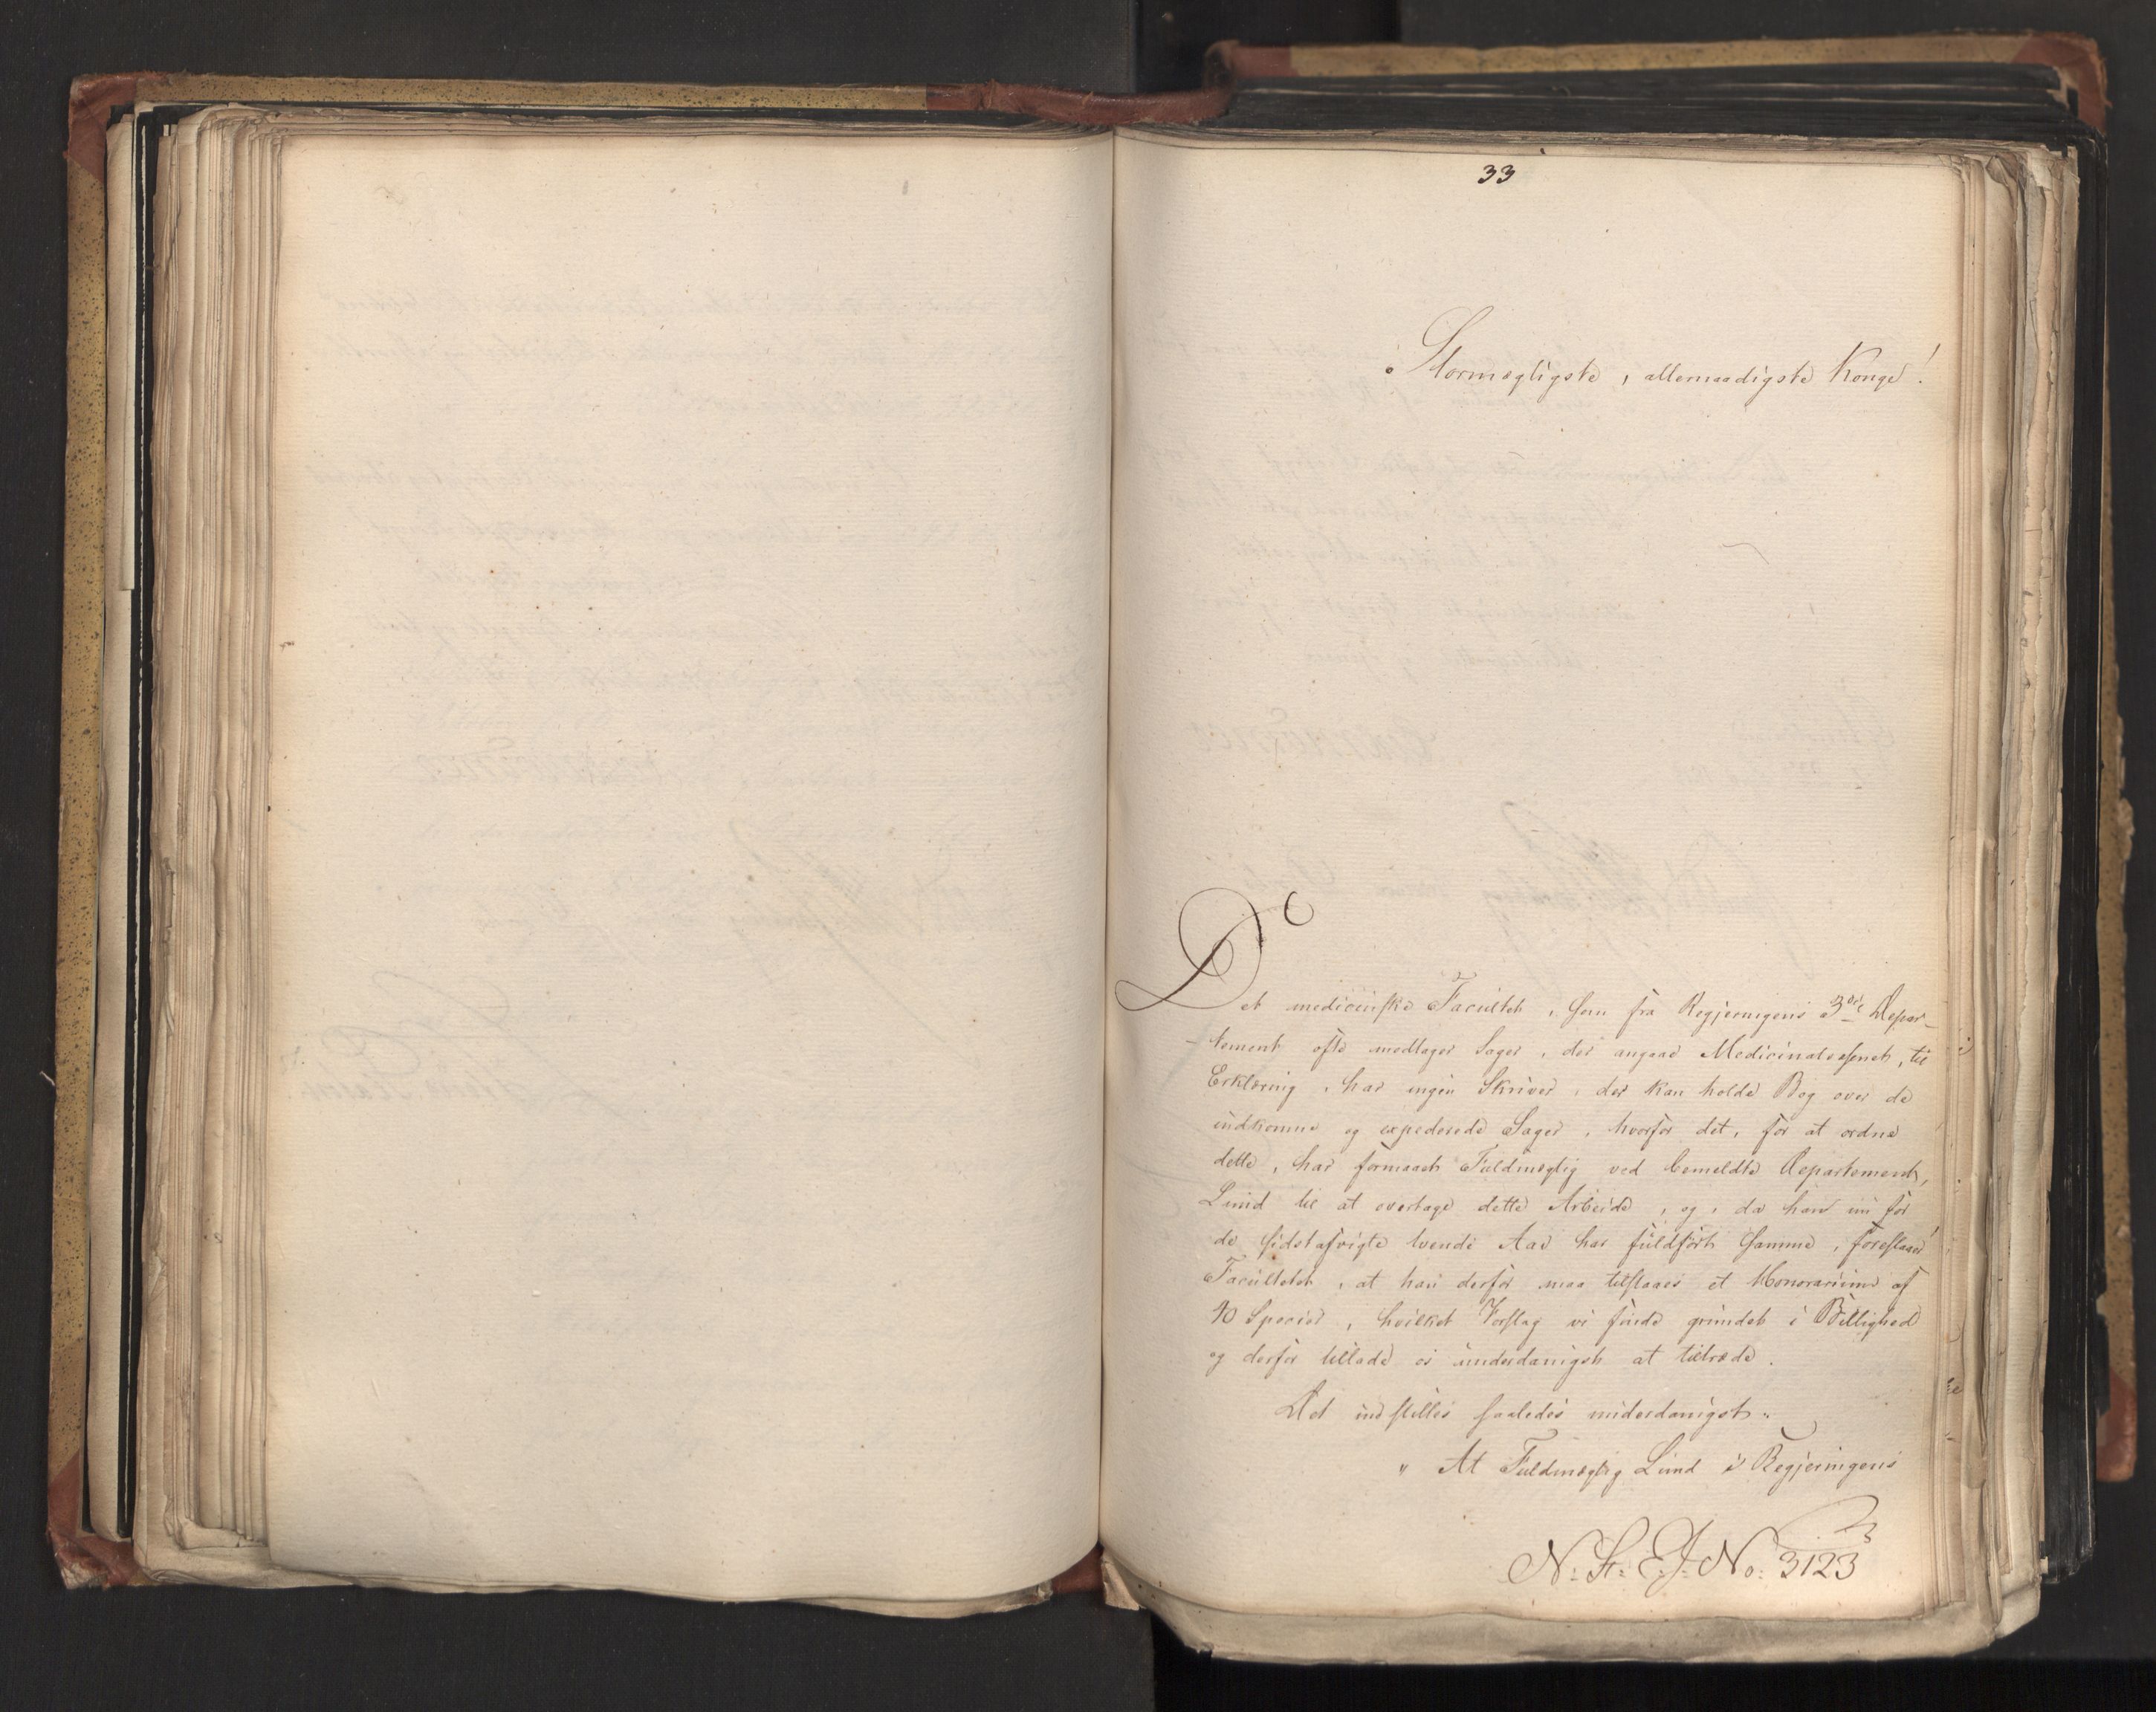 33
Stormægtigste, allernaadigste Konge!
Det medicinske Facultet, som fra Regjeringens 3die Depar-
tement ofte modtager Sager, der angaae Medicinalvæsnet, til
Erklæring, har ingen Skriver, der kan holde Bog over de
indkomne og expederede Sager, hvorfor det, for at ordne
dette, har formaaet Fuldmægtig ved bemeldte Departement,
Lund til at overtage dette Arbeide, og, da han nu for
de sidstafvigte tvende Aar har fuldført samme, foreslaaer
Facultetet, at han derfor maa tilstaaes et Honorarium af
40 Specier, hvilket Forslag vi finde grundet i Billighed
og derfor tillade os underdanigst at tiltræde.
Det indstilles saaledes underdanigst:
" At Fuldmægtig Lund i Regjeringens
N: St: E. J: No: 3123